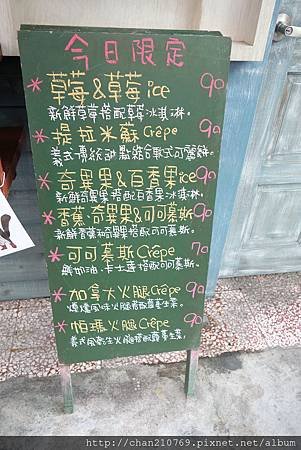 今日限定
* 草莓&草莓ice 90
新鮮草莓搭配草莓冰淇淋.
* 提拉米蘇Crêpe 90
義式傳統甜點結合軟式可麗餅.
* 奇異果&百香果ice 90
新鮮奇異果搭配百香果冰淇淋.
* 香蕉.奇異果&可可慕斯 90
新鮮香蕉和奇異果搭配可可慕斯.
* 可可慕斯Crêpe 70
鮮奶油.卡士達搭配可可慕斯.
* 加拿大火腿Crêpe 90
煙燻風味火腿搭配蘿蔓生菜.
* 帕瑪火腿Crêpe 90
義式風乾生火腿搭配蘿蔓生菜.
http://chan210769.pixnet.net/album